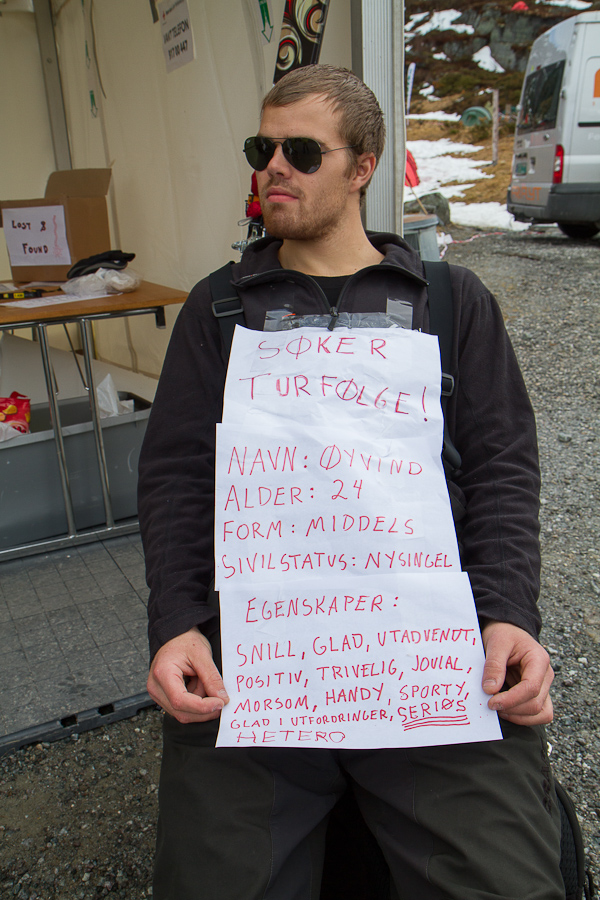 VAKTTELEFON
917 80 447
LOST &
FOUND
SØKER
TURFØLGE!
NAVN: ØYVIND
ALDER: 24
FORM: MIDDELS
SIVILSTATUS: NYSINGEL
EGENSKAPER:
SNILL, GLAD, UTADVENDT,
POSITIV, TRIVELIG, JOVIAL,
MORSOM, HANDY, SPORTY,
GLAD I UTFORDRINGER, SERIØS
HETERO